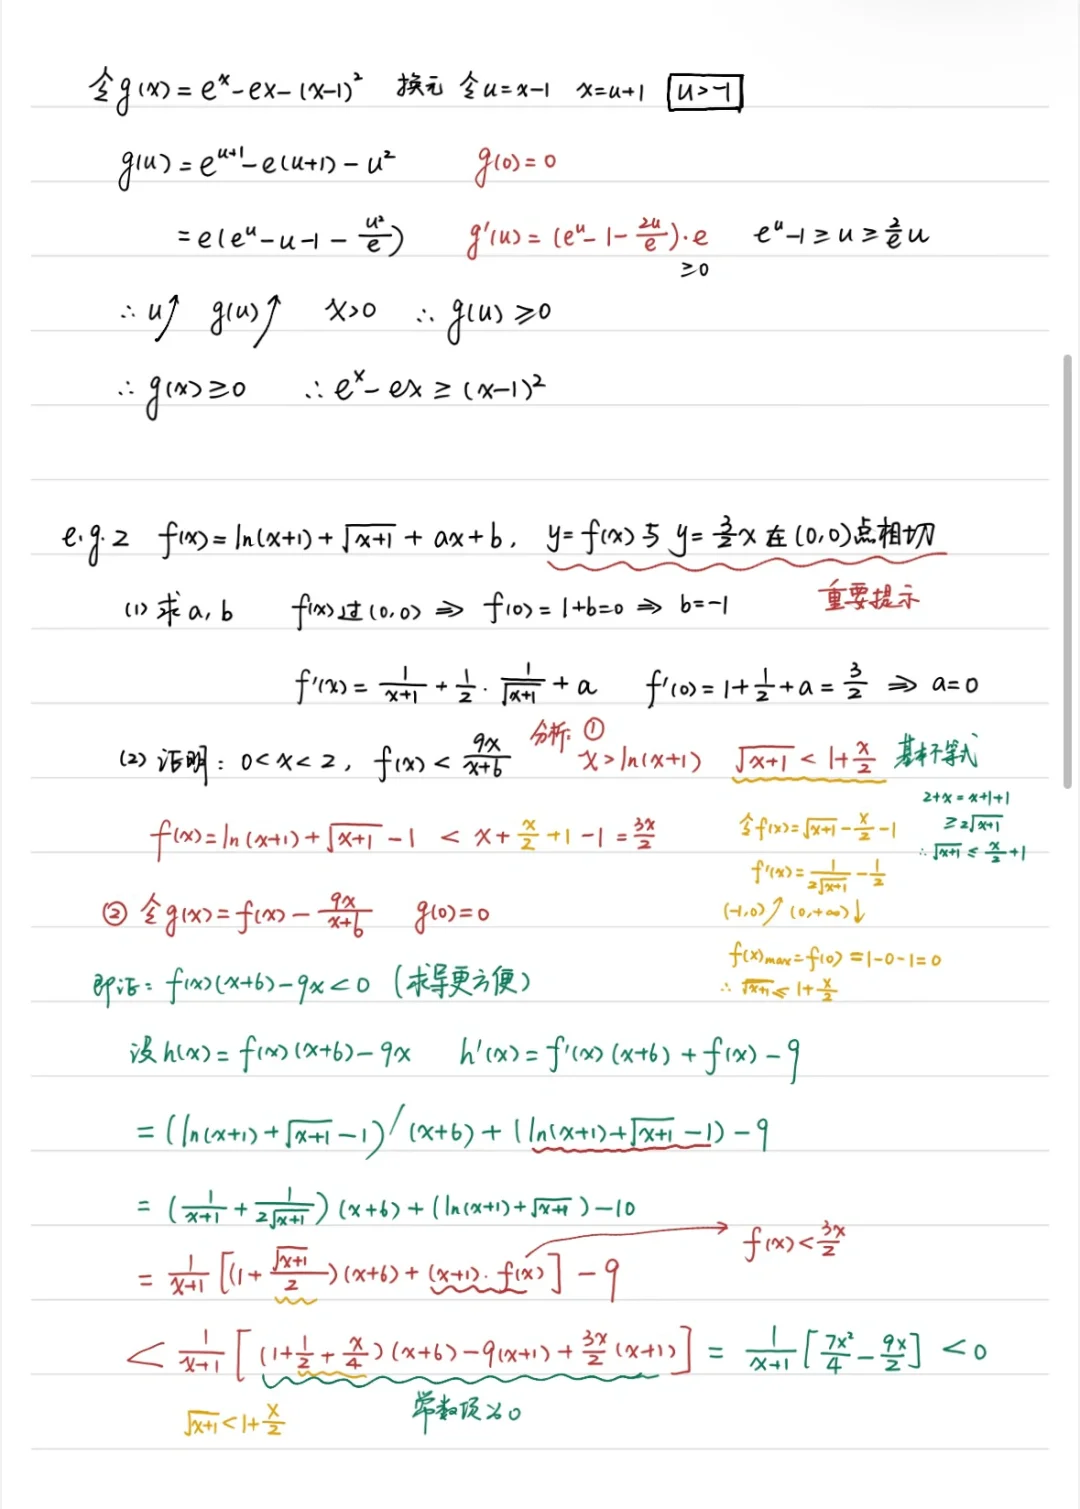 令g(x)=eˣ-ex-(x-1)² 换元 令u=x-1 x=u+1 u>-1
g(u)=eᵘ⁺¹-e(u+1)-u² g(0)=0
=e(eᵘ-u-1-u²/e) g'(u)=(eᵘ-1-2u/e)·e ≥0 eᵘ-1≥u≥2/e u
∴u↑ g(u)↑ x>0 ∴g(u)≥0
∴g(x)≥0 ∴eˣ-ex≥(x-1)²
e.g.2 f(x)=ln(x+1)+√(x+1)+ax+b, y=f(x)与y=3/2 x在(0,0)点相切
重要提示
(1)求a,b f(x)过(0,0)⇒f(0)=1+b=0⇒b=-1
f'(x)=1/(x+1)+1/2·1/√(x+1)+a f'(0)=1+1/2+a=3/2⇒a=0
(2)证明:0<x<2, f(x)<9x/(x+6) 分析:① x>ln(x+1) √(x+1)<1+x/2 基本不等式
2+x=x+1+1
≥2√(x+1)
∴√(x+1)≤x/2+1
f(x)=ln(x+1)+√(x+1)-1<x+x/2+1-1=3x/2
令f(x)=√(x+1)-x/2-1
f'(x)=1/(2√(x+1))-1/2
(-1,0)↑(0,+∞)↓
f(x)max=f(0)=1-0-1=0
∴√(x+1)≤1+x/2
②令g(x)=f(x)-9x/(x+6) g(0)=0
即证:f(x)(x+6)-9x<0(求导更方便)
设h(x)=f(x)(x+6)-9x h'(x)=f'(x)(x+6)+f(x)-9
=(ln(x+1)+√(x+1)-1)'(x+6)+(ln(x+1)+√(x+1)-1)-9
=(1/(x+1)+1/(2√(x+1)))(x+6)+(ln(x+1)+√(x+1))-10
=1/(x+1)[(1+√(x+1)/2)(x+6)+(x+1)·f(x)]-9 → f(x)<3x/2
<1/(x+1)[(1+1/2+x/4)(x+6)-9(x+1)+3x/2(x+1)]=1/(x+1)[7x²/4-9x/2]<0
√(x+1)<1+x/2 常数项为0